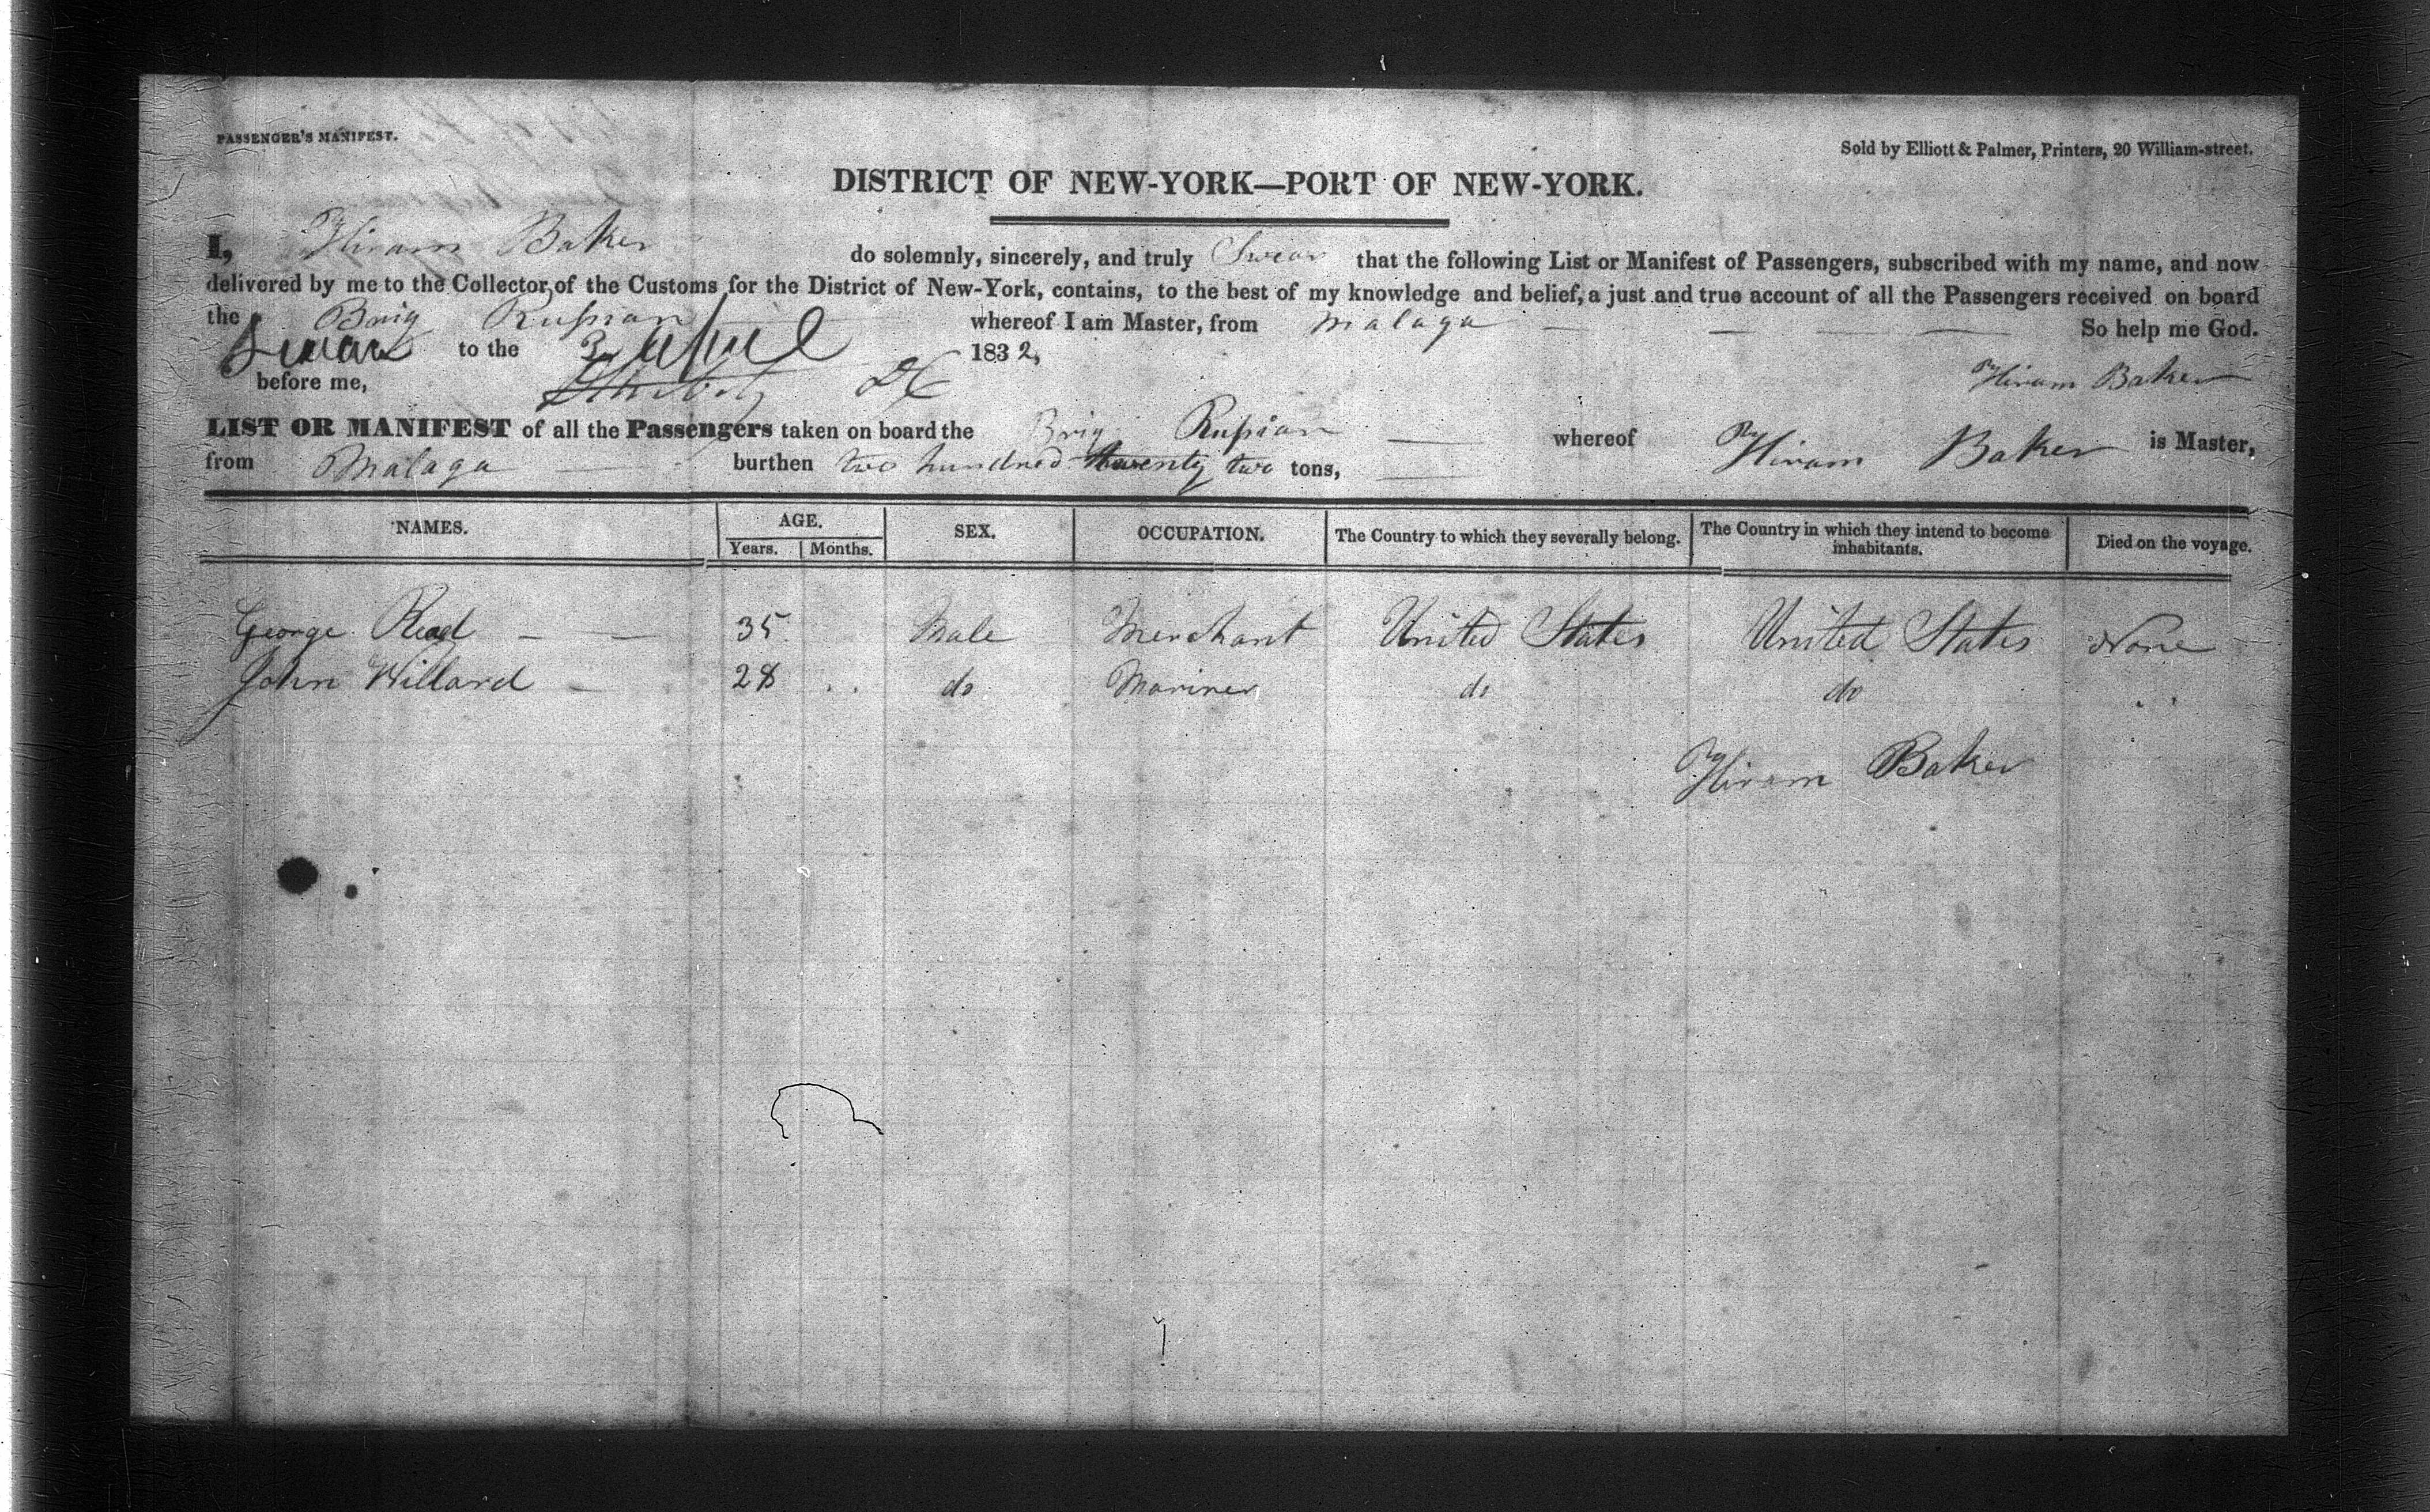 PASSENGER'S MANIFEST.
Sold by Elliott & Palmer, Printers, 20 William-street.
DISTRICT OF NEW-YORK—PORT OF NEW-YORK.
I, Hiram Baker do solemnly, sincerely, and truly Swear that the following List or Manifest of Passengers, subscribed with my name, and now
delivered by me to the Collector of the Customs for the District of New-York, contains, to the best of my knowledge and belief, a just and true account of all the Passengers received on board
the Brig Russian whereof I am Master, from Malaga So help me God.
to the 3 April 1832,
before me, Hiram Baker
LIST OR MANIFEST of all the Passengers taken on board the Brig Russian whereof Hiram Baker is Master,
from Malaga burthen two hundred twenty two tons,
NAMES. AGE. SEX. OCCUPATION. The Country to which they severally belong. The Country in which they intend to become inhabitants. Died on the voyage.
Years. Months.
George Read 35 Male Merchant United States United States None
John Willard 28 do Mariner do do
Hiram Baker